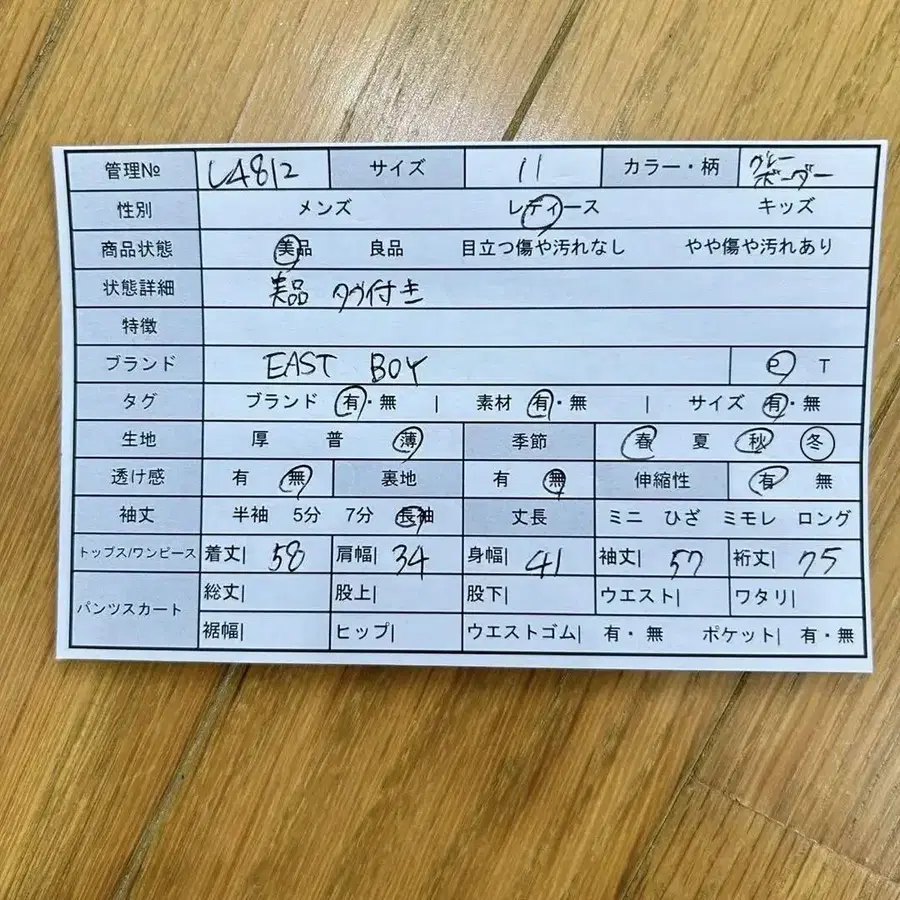 管理№ L4812 サイズ 11 カラー・柄 グレーボーダー
性別 メンズ レディース キッズ
商品状態 美品 良品 目立つ傷や汚れなし やや傷や汚れあり
状態詳細 美品 タグ付き
特徴
ブランド EAST BOY P T
タグ ブランド 有・無 | 素材 有・無 | サイズ 有・無
生地 厚 普 薄 季節 春 夏 秋 冬
透け感 有 無 裏地 有 無 伸縮性 有 無
袖丈 半袖 5分 7分 長袖 丈長 ミニ ひざ ミモレ ロング
トップス/ワンピース 着丈| 58 肩幅| 34 身幅| 41 袖丈| 57 裄丈| 75
パンツスカート 総丈| 股上| 股下| ウエスト| ワタリ|
裾幅| ヒップ| ウエストゴム| 有・無 ポケット| 有・無